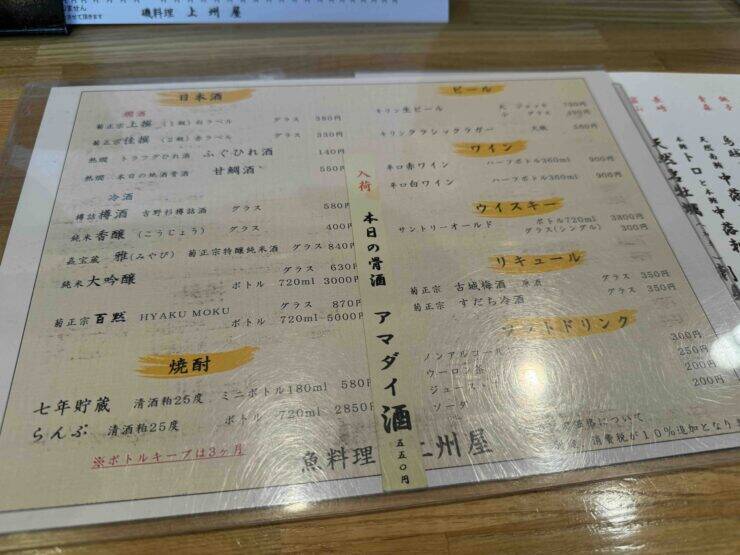 磯料理 上州屋
日本酒
燗酒
菊正宗上撰 (1級) 白ラベル グラス 380円
菊正宗佳撰 (2級) 赤ラベル グラス 330円
熱燗 トラフグひれ酒 ふぐひれ酒 140円
熱燗 本日の地酒骨酒 甘鯛酒 550円
冷酒
樽詰樽酒 吉野杉樽詰酒 グラス 580円
純米香醸 (こうじょう) グラス 400円
嘉宝蔵 雅(みやび) 菊正宗特醸純米酒 グラス 840円
純米大吟醸 グラス 630円
ボトル 720ml 3000円
菊正宗 百黙 HYAKU MOKU グラス 870円
ボトル 720ml 5000円
焼酎
七年貯蔵 清酒粕25度 ミニボトル180ml 580円
らんぷ 清酒粕25度 ボトル 720ml 2850円
※ボトルキープは3ヶ月
入荷 本日の骨酒 アマダイ酒 五五〇円
ビール
キリン生ビール 大 ジョッキ 750円
小 グラス
キリンクラシックラガー 大瓶
ワイン
辛口赤ワイン ハーフボトル360ml 900円
辛口白ワイン ハーフボトル360ml 900円
ウイスキー
サントリーオールド ボトル720ml 3800円
グラス(シングル) 300円
リキュール
菊正宗 古城梅酒 原酒 グラス 350円
菊正宗 すだち冷酒 グラス 350円
ソフトドリンク
ノンアルコール 300円
ウーロン茶 250円
ジュース 200円
ソーダ 200円
について
消費税が10%追加となりま
魚料理 上州屋